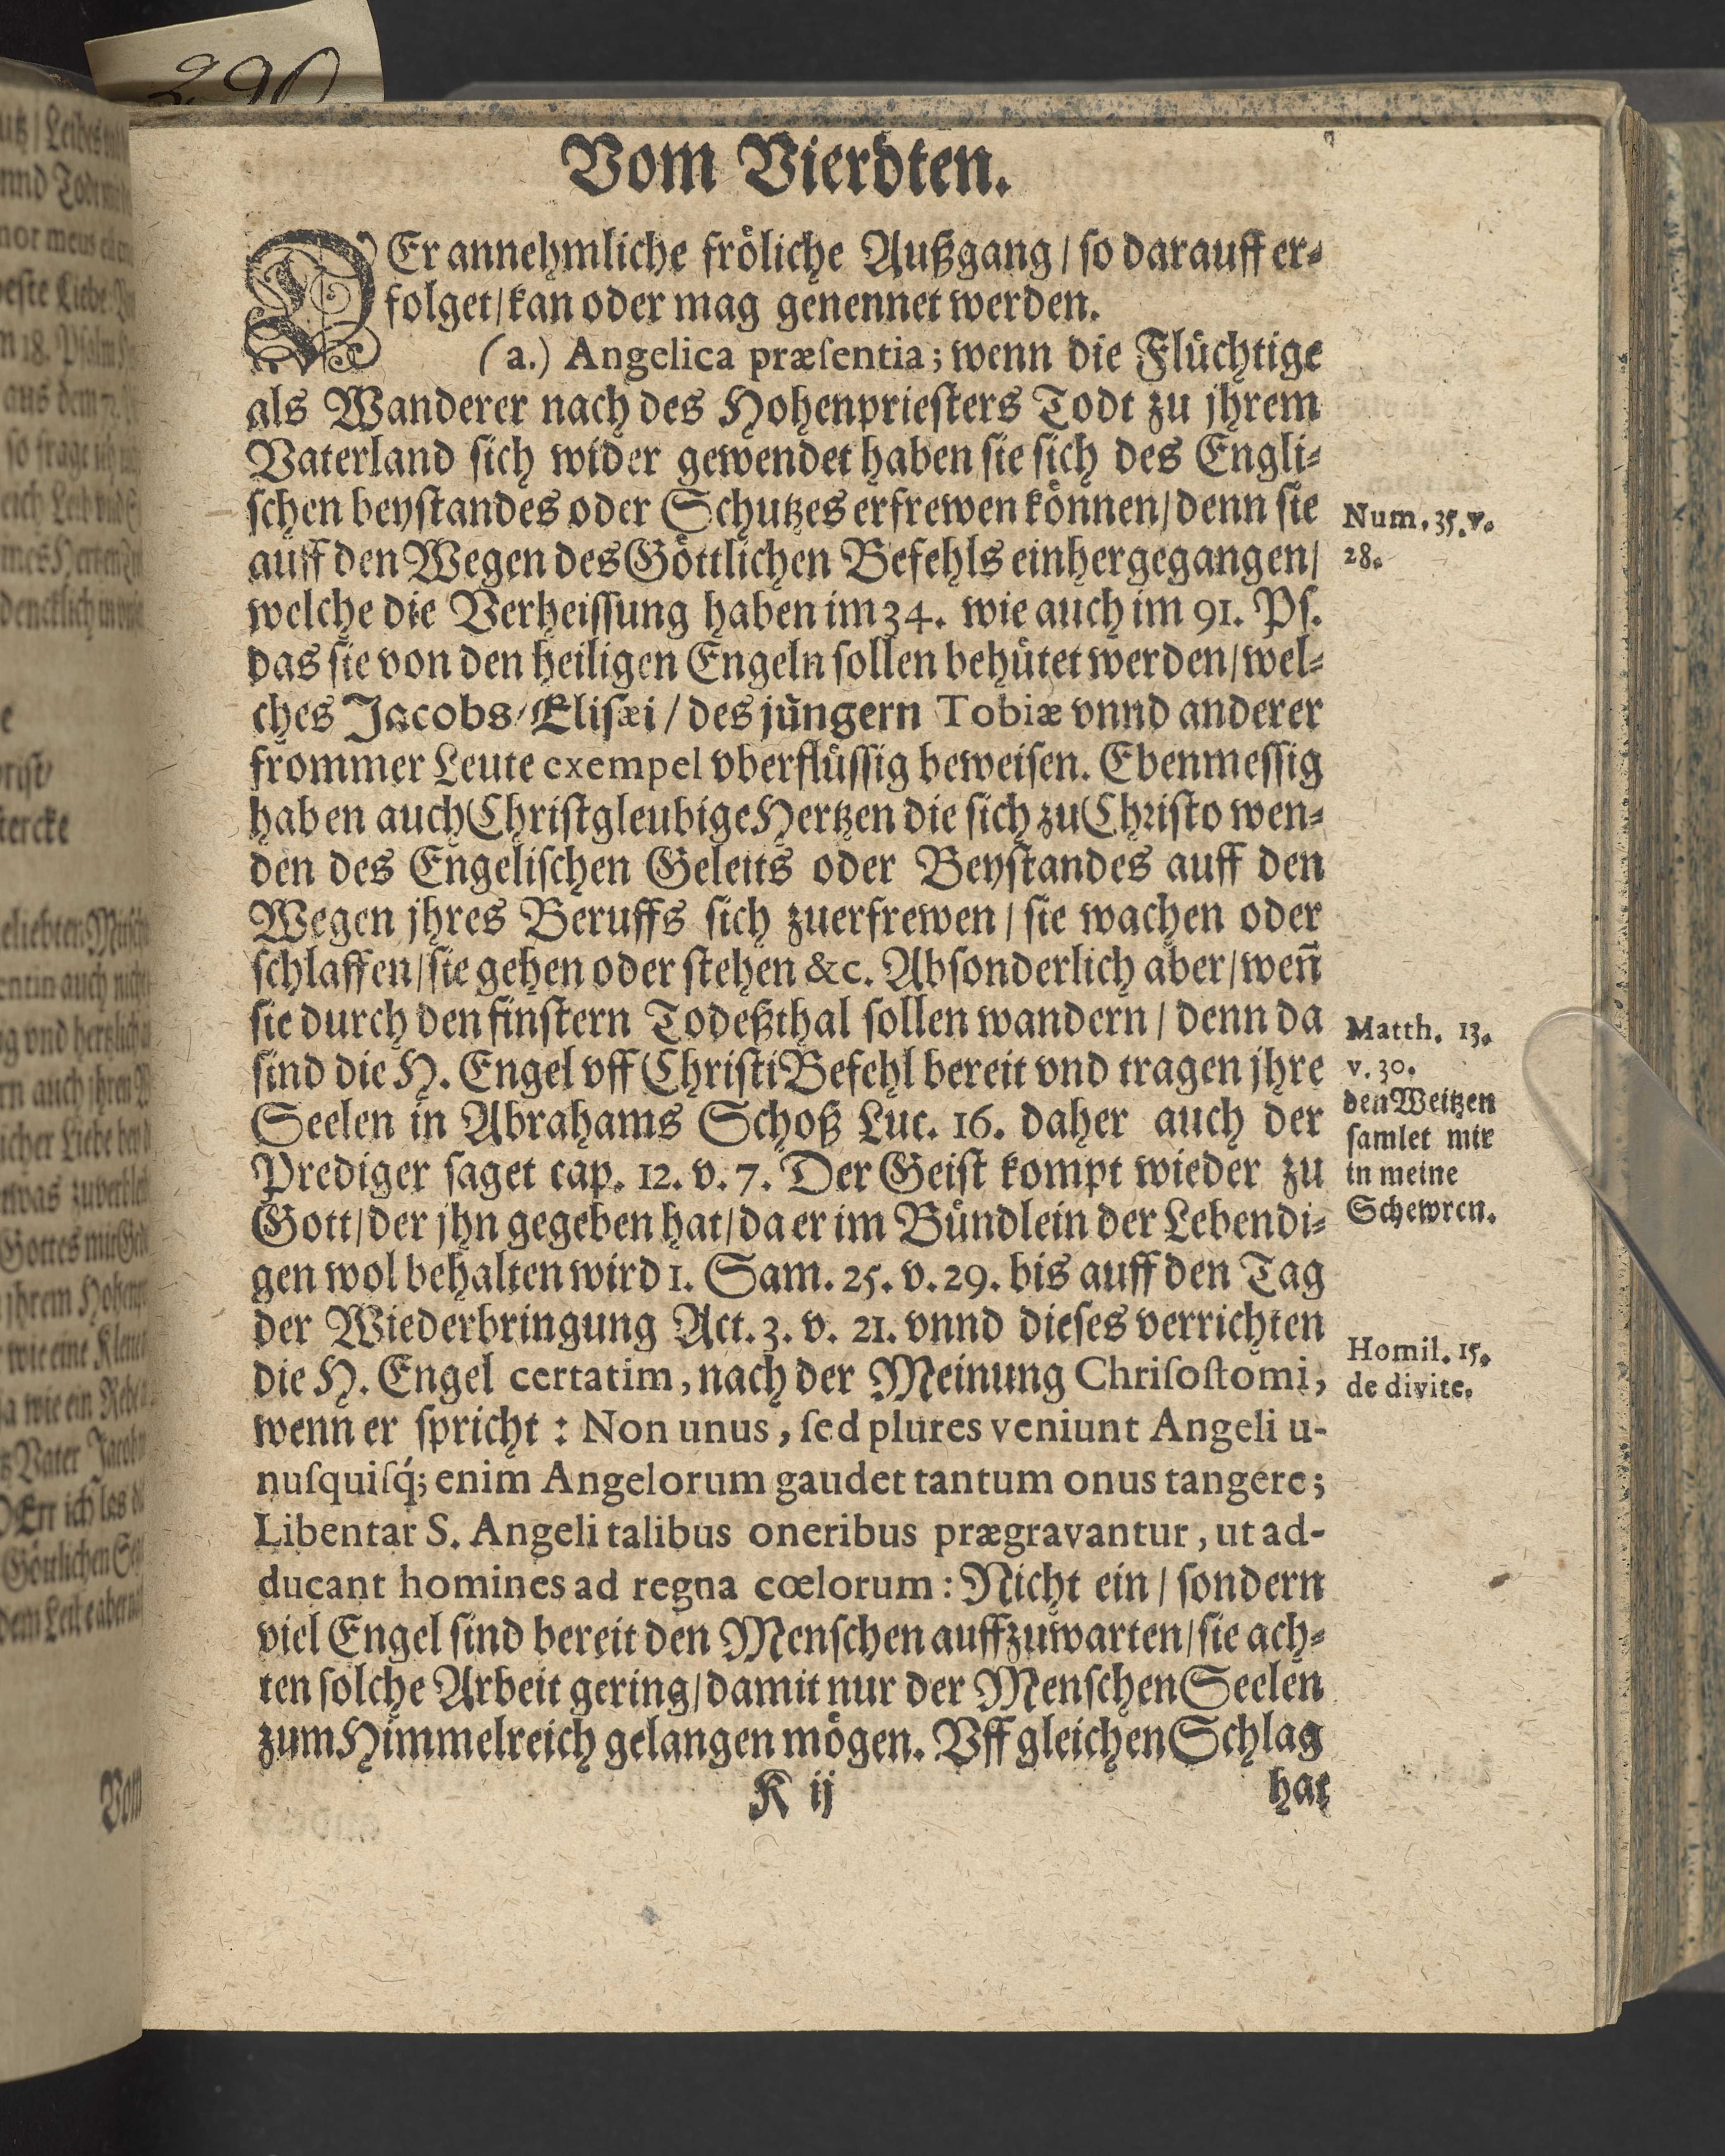 290
Vom Vierdten.
DEr annehmliche fröliche Außgang / so darauff er-
folget / kan oder mag genennet werden.
(a.) Angelica præſentia; wenn die Flüchtige
als Wanderer nach des Hohenprieſters Todt zu jhrem
Vaterland ſich wider gewendet haben ſie ſich des Engli-
ſchen beyſtandes oder Schutzes erfrewen können / denn ſie
Num. 35. v.
28.
auff den Wegen des Göttlichen Befehls einhergegangen /
welche die Verheiſſung haben im 34. wie auch im 91. Pſ.
das ſie von den heiligen Engeln ſollen behütet werden / wel-
ches Jacobs / Eliſæi / des jüngern Tobiæ vnnd anderer
frommer Leute exempel vberflüſſig beweiſen. Ebenmeſſig
haben auch Chriſtgleubige Hertzen die ſich zu Chriſto wen-
den des Engeliſchen Geleits oder Beyſtandes auff den
Wegen jhres Beruffs ſich zuerfrewen / ſie wachen oder
ſchlaffen / ſie gehen oder ſtehen &c. Abſonderlich aber / weñ
ſie durch den finſtern Todeßthal ſollen wandern / denn da
ſind die H. Engel vff Chriſti Befehl bereit vnd tragen jhre
Seelen in Abrahams Schoß Luc. 16. daher auch der
Prediger ſaget cap. 12. v. 7. Der Geiſt kompt wieder zu
Gott / der jhn gegeben hat / da er im Bündlein der Lebendi-
Matth. 13.
v. 30.
den Weitzen
ſamlet mir
in meine
Schewren.
gen wol behalten wird 1. Sam. 25. v. 29. bis auff den Tag
der Wiederbringung Act. 3. v. 21. vnnd dieſes verrichten
die H. Engel certatim, nach der Meinung Chriſoſtomi,
Homil. 15.
de divite.
wenn er ſpricht : Non unus, ſed plures veniunt Angeli u-
nuſquiſq́; enim Angelorum gaudet tantum onus tangere;
Libentar S. Angeli talibus oneribus prægravantur, ut ad-
ducant homines ad regna cœlorum : Nicht ein / ſondern
viel Engel ſind bereit den Menſchen auffzuwarten / ſie ach-
ten ſolche Arbeit gering / damit nur der Menſchen Seelen
zum Himmelreich gelangen mögen. Vff gleichen Schlag
K ij
hat